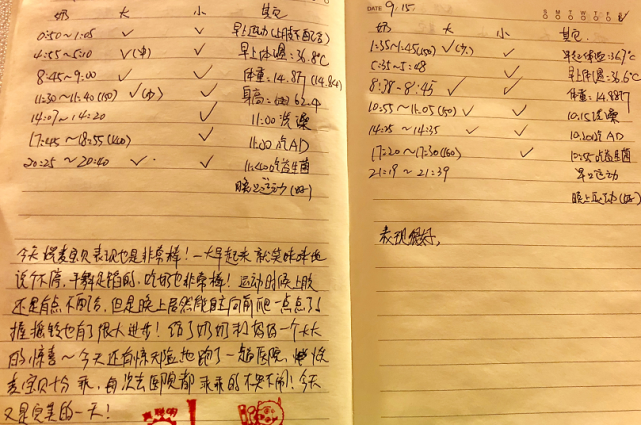 奶 大 小 其它
0:50~1:05 ✓ ✓ 早上运动(上肢不配合)
4:55~5:10 ✓(中) ✓ 早上体温:36.8℃
8:45~9:00 ✓ ✓ 体重:14.877
11:30~11:40(150) ✓(少) ✓ 身高:62.4
14:07~14:20 ✓ 11:00洗澡
17:45~18:55(160) ✓ 11:00吃AD
20:25~20:40 ✓ ✓ 11:40吃益生菌
晚上运动(好)
今天 麦宝贝表现也是非常棒!一大早起来就笑咪咪地
说个不停,吃奶也非常棒!运动的时候上肢
还是有点不配合,但是晚上居然能自主向前爬一点点了!
握摇铃也有了很大进步!给了奶奶和妈妈一个大大
的惊喜~今天还有惊无险地跑了一趟医院,
麦宝贝十分乖,每次去医院都乖乖的不哭不闹!今天
又是完美的一天!
DATE 9.15
S M T W T F S
奶 大 小 其它
1:35~1:45(150) ✓(少) ✓ 早起体温:36.7℃
5:35~5:48 ✓ 早上体温:36.6℃
8:38~8:45 ✓ ✓ 体重:14.887
10:55~11:05(150) ✓ ✓ 10:15洗澡
14:25~14:35 ✓ ✓ 10:20吃AD
17:20~17:30(160) ✓ 10:55吃益生菌
21:19~21:39 早上运动
晚上运动(好)
表现很好。